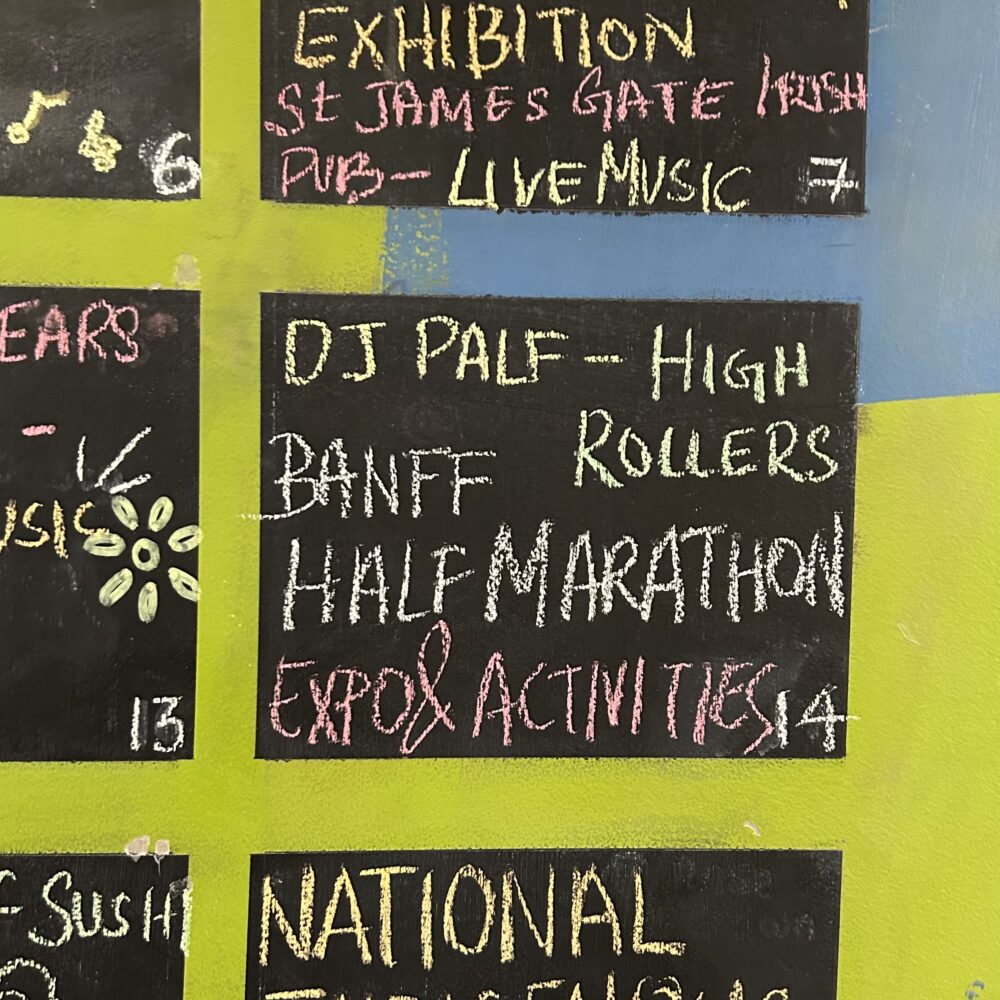 EXHIBITION
St JAMES GATE IRISH
PUB - LIVE MUSIC 7
6
EARS
-
USIC
13
DJ PALF - HIGH
ROLLERS
BANFF
HALF MARATHON
EXPO & ACTIVITIES 14
F SUSHI
NATIONAL